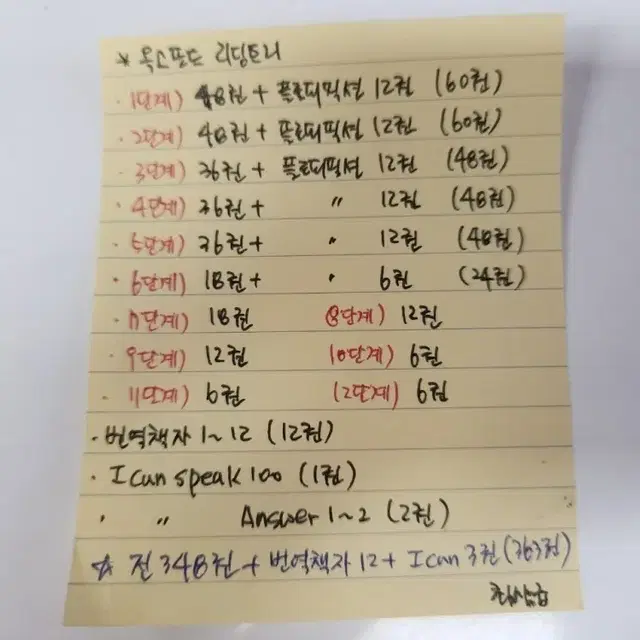 * 옥스포드 리딩트리
· 1단계) 48권 + 플로피픽션 12권 (60권)
· 2단계) 48권 + 플로피픽션 12권 (60권)
· 3단계) 36권 + 플로피픽션 12권 (48권)
· 4단계) 36권 + 〃 12권 (48권)
· 5단계) 36권 + 〃 12권 (48권)
· 6단계) 18권 + 〃 6권 (24권)
· 7단계) 18권 8단계) 12권
· 9단계) 12권 10단계) 6권
· 11단계) 6권 12단계) 6권
· 번역책자 1~12 (12권)
· I can speak 100 (1권)
· 〃 Answer 1~2 (2권)
☆ 전 348권 + 번역책자 12 + I can 3권 (363권)
최상급